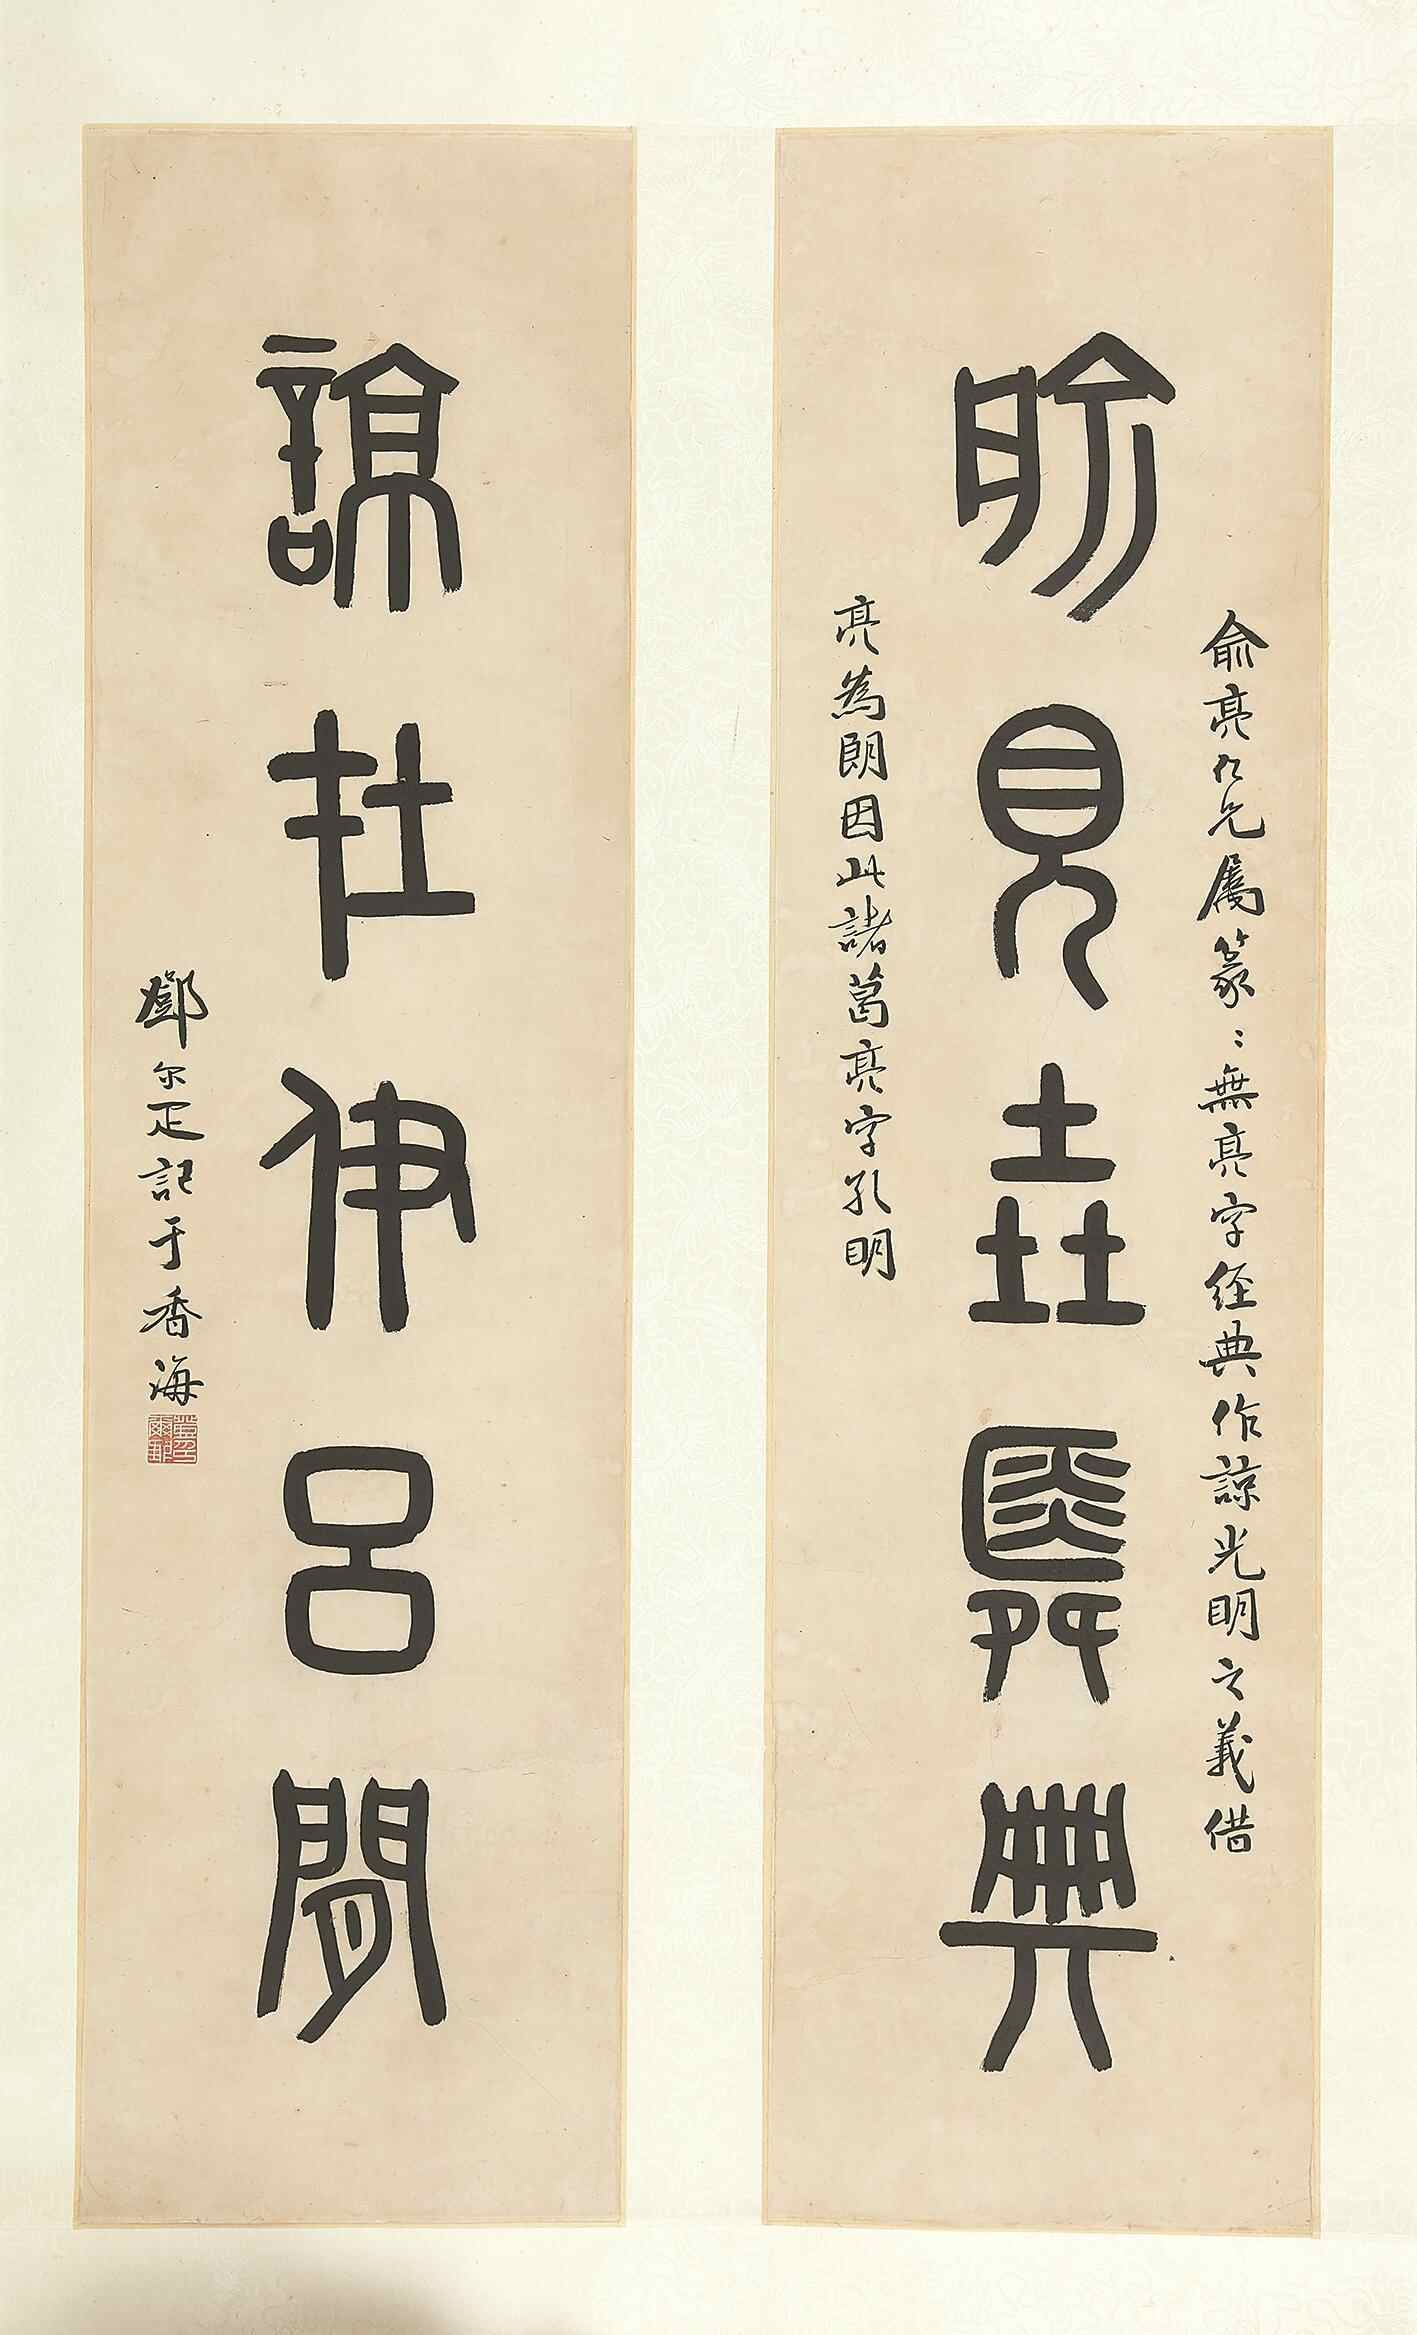 俞見垚舜典
俞亮仁兄屬篆〻無亮字經典作諒光明之義借
亮為朗因此諸葛亮字孔明
諒在伊呂閒
鄧尔疋記于香海